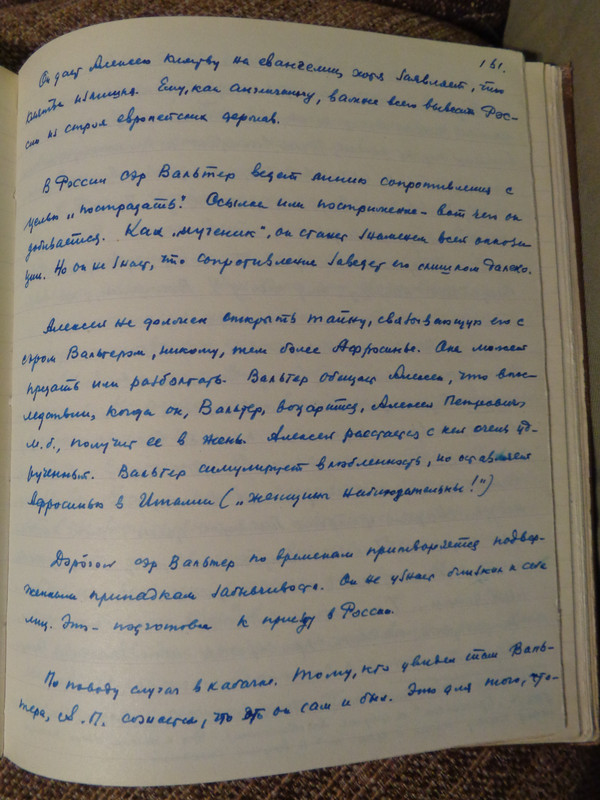 161.
Он дает Алексею клятву на евангелии, хотя заявляет, что
клятва излишня. Ему, как англичанину, важнее всего вывести Рос-
сию из строя европейских держав.
В России сэр Вальтер ведет линию сопротивления с
целью „пострадать“. Ссылка или пострижение - вот чего он
добивается. Как „мученик“, он станет знаменем всей оппози-
ции. Но он не знает, что сопротивление заведет его слишком далеко.
Алексей не должен открыть тайну, связывающую его с
сэром Вальтером, никому, тем более Афросинье. Она может
предать или разболтать. Вальтер обещает Алексею, что впос-
ледствии, когда он, Вальтер, воцарится, Алексей Петрович,
м.б., получит ее в жены. Алексей расстается с ней очень уд-
рученный. Вальтер симулирует влюбленность, но оставляет
Афросинью в Италии („Женщины наблюдательны!“)
Дорогой сэр Вальтер по временам притворяется подвер-
женным припадкам забывчивости. Он не узнает близких к себе
лиц. Это - подготовка к приезду в Россию.
По поводу случая в кабачке. Тому, кто увидел там Валь-
тера, А. П. сознается, что это он сам и был. Это для того, что-